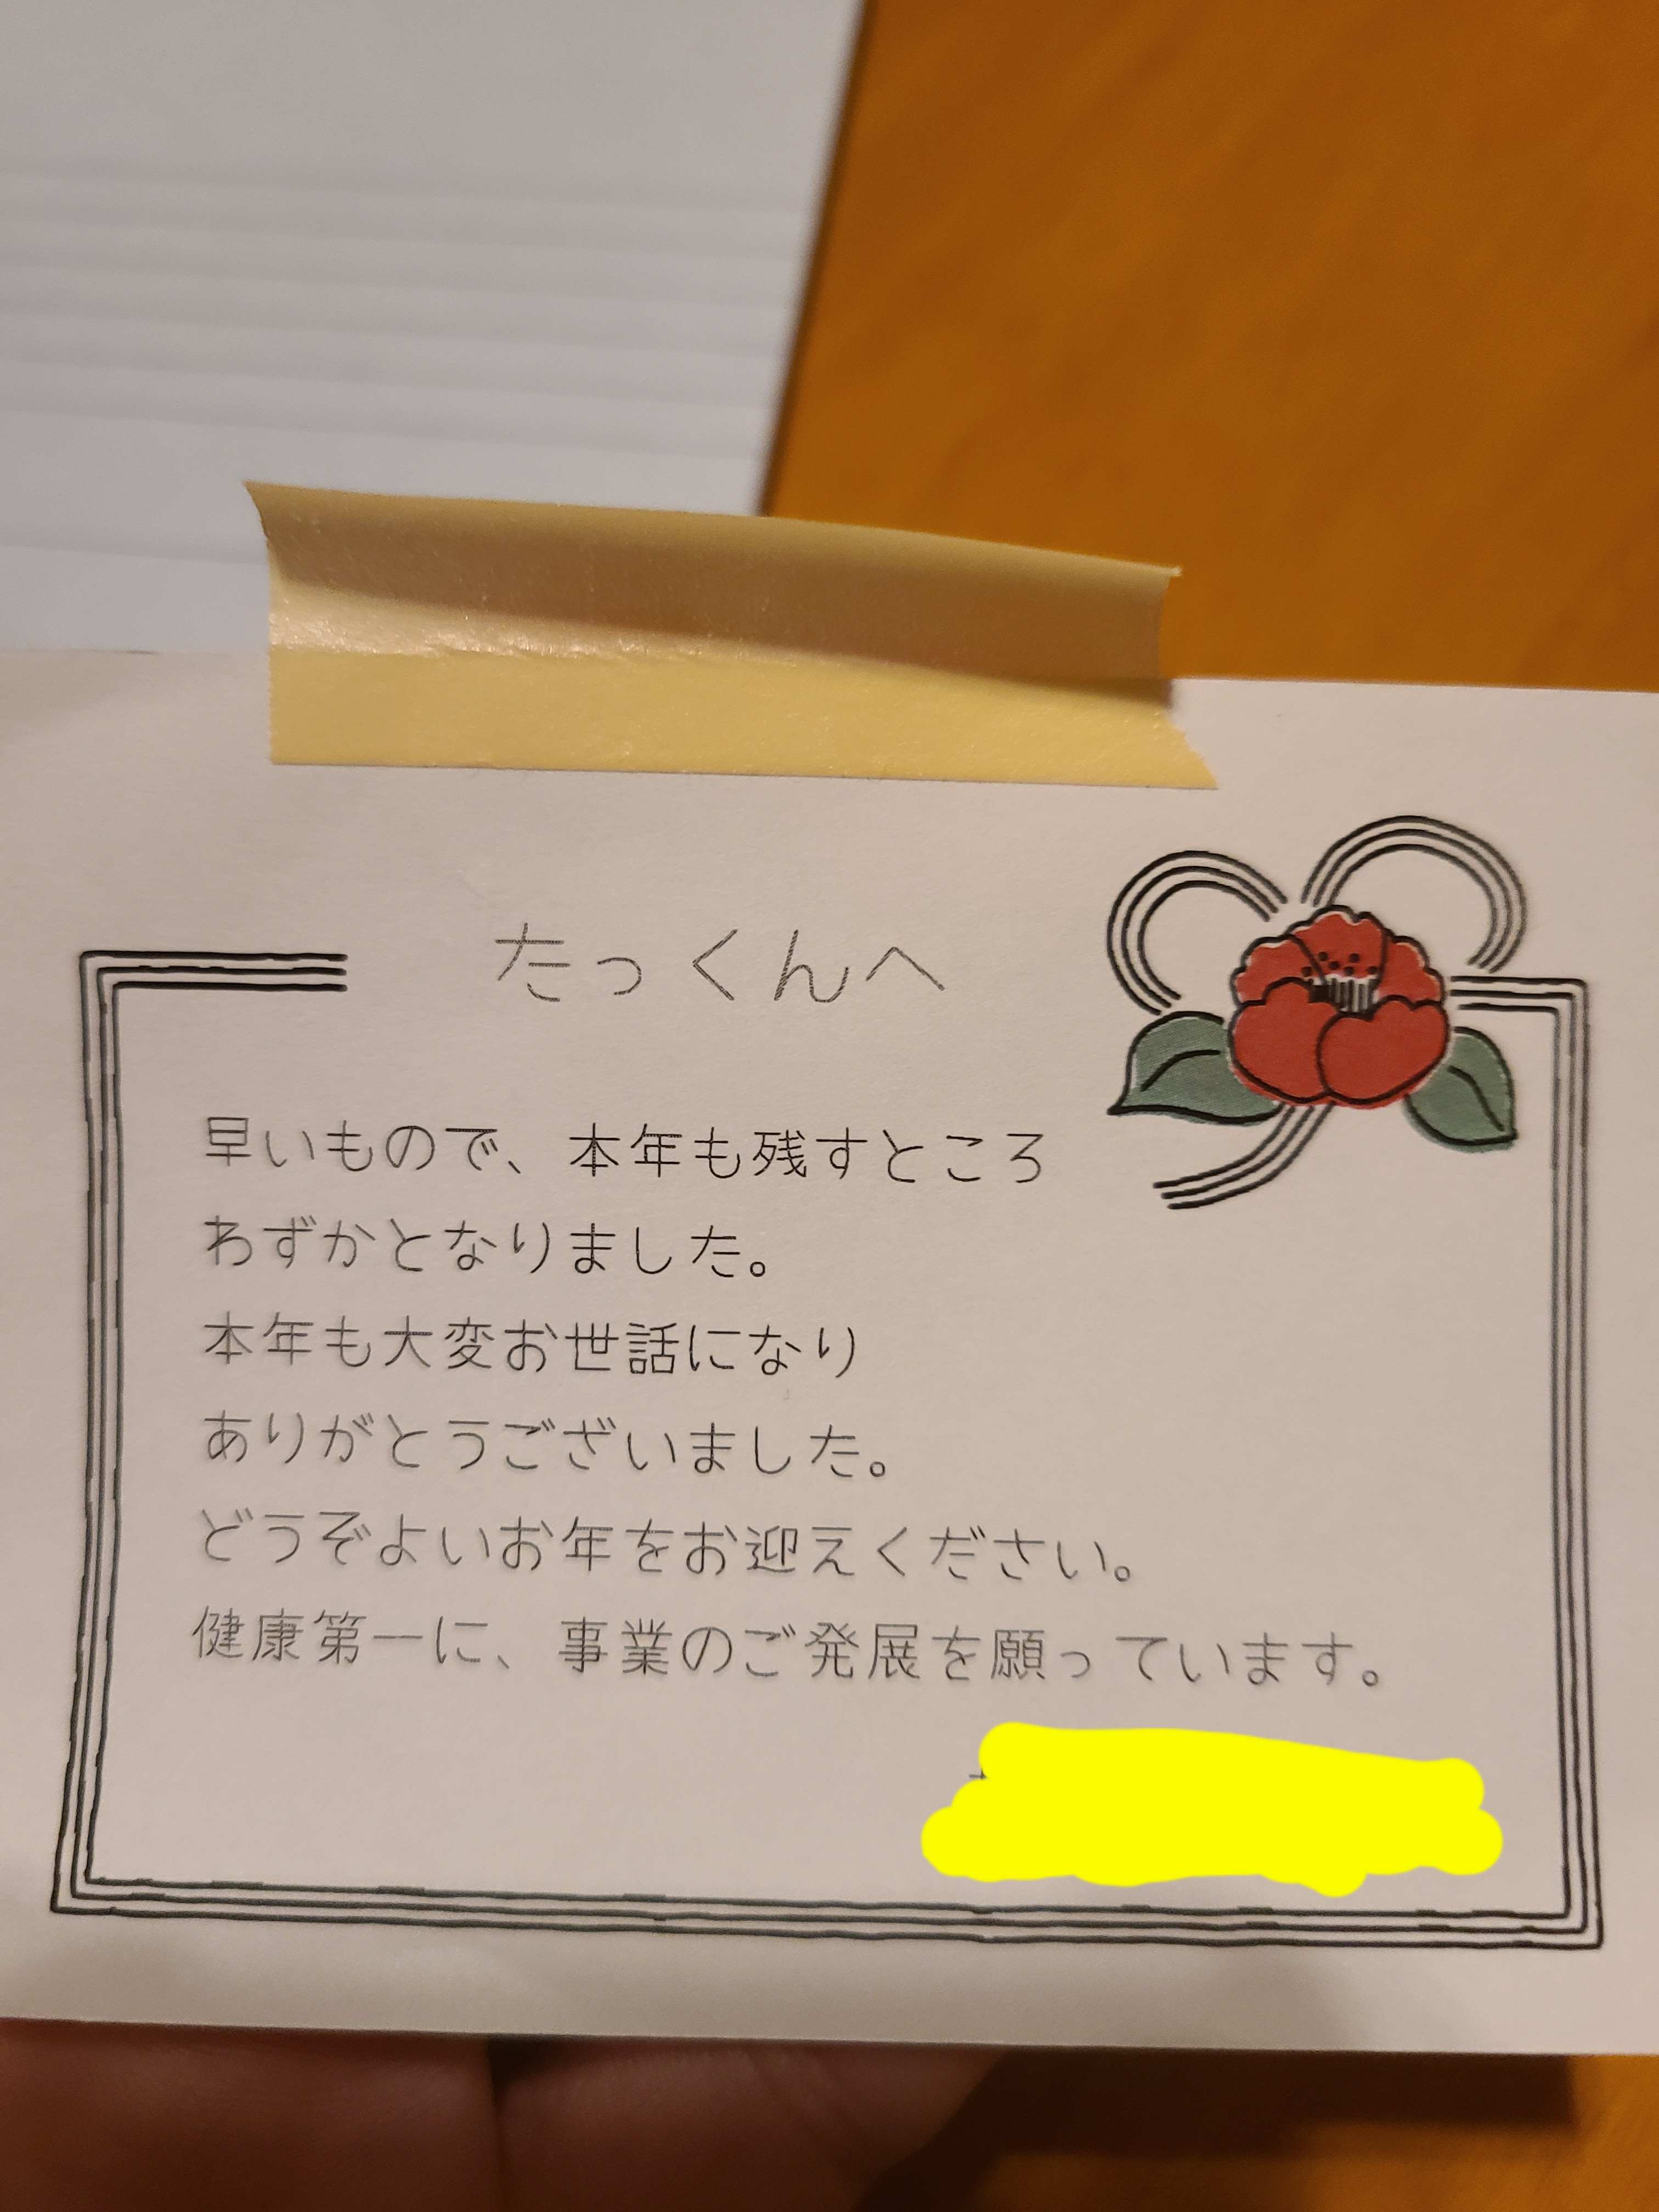 たっくんへ
早いもので、本年も残すところ
わずかとなりました。
本年も大変お世話になり
ありがとうございました。
どうぞよいお年をお迎えください。
健康第一に、事業のご発展を願っています。